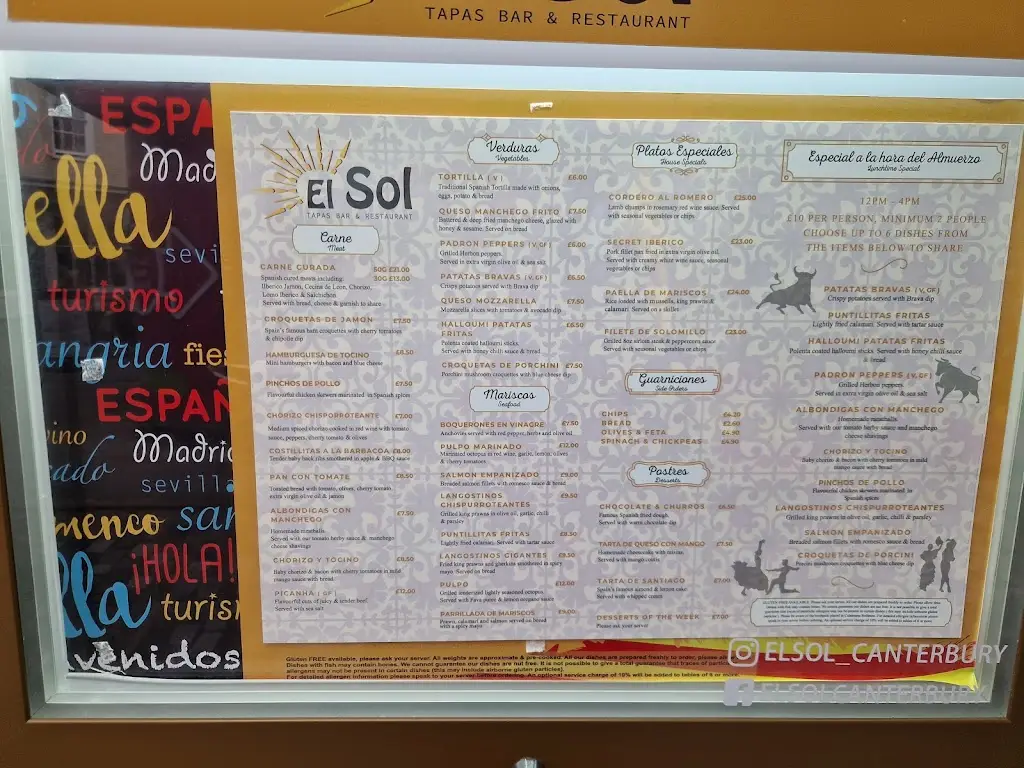 TAPAS BAR & RESTAURANT
ESPA
Mad
ella
sevi
turismo
angria fie
ESPAÑ
ino Madri
cado
sevill
menco san
¡HOLA!
lla turis
venidos
El Sol
TAPAS BAR & RESTAURANT
Carne
Meat
CARNE CURADA 50G £21.00
50G £13.00
Spanish cured meats including:
Iberico Jamon, Cecina de Leon, Chorizo,
Lomo Iberico & Salchichon
Served with bread, cheese & garnish to share
CROQUETAS DE JAMON £7.50
Spain's famous ham croquettes with cherry tomatoes
& chipotle dip
HAMBURGUESA DE TOCINO £8.50
Mini hamburgers with bacon and blue cheese
PINCHOS DE POLLO £7.50
Flavourful chicken skewers marinated in Spanish spices
CHORIZO CHISPORROTEANTE £7.00
Medium spiced chorizo cooked in red wine with tomato
sauce, peppers, cherry tomato & olives
COSTILLITAS A LA BARBACOA £8.00
Tender baby back ribs smothered in apple & BBQ sauce
PAN CON TOMATE £8.50
Toasted bread with tomato, olives, cherry tomato
extra virgin olive oil & jamon
ALBONDIGAS CON £7.50
MANCHEGO
Homemade meatballs.
Served with our tomato herby sauce & manchego
cheese shavings
CHORIZO Y TOCINO £8.50
Baby chorizo & bacon with cherry tomatoes in mild
mango sauce with bread
PICANHA (GF) £12.00
Flavourful cuts of juicy & tender beef
Served with sea salt
Verduras
Vegetables
TORTILLA (V) £6.00
Traditional Spanish Tortilla made with onions,
eggs, potato & bread
QUESO MANCHEGO FRITO £7.50
Battered & deep fried manchego cheese, glazed with
honey & sesame. Served on bread
PADRON PEPPERS (V, GF) £6.00
Grilled Herbon peppers.
Served in extra virgin olive oil & sea salt
PATATAS BRAVAS (V, GF) £6.50
Crispy potatoes served with Brava dip
QUESO MOZZARELLA £7.50
Mozzarella slices with tomatoes & avocado dip
HALLOUMI PATATAS £6.50
FRITAS
Polenta coated halloumi sticks.
Served with honey chilli sauce & bread
CROQUETAS DE PORCHINI £7.50
Porcini mushroom croquettes with blue cheese dip
Mariscos
Seafood
BOQUERONES EN VINAGRE £7.50
Anchovies served with red pepper, herbs and olive oil
PULPO MARINADO £12.00
Marinated octopus in red wine, garlic, lemon, olives
& cherry tomatoes
SALMON EMPANIZADO £9.00
Breaded salmon fillets with romesco sauce & bread
LANGOSTINOS £9.50
CHISPURROTEANTES
Grilled king prawns in olive oil, garlic, chilli
& parsley
PUNTILLITAS FRITAS £8.50
Lightly fried calamari. Served with tartar sauce
LANGOSTINOS GIGANTES £9.50
Fried king prawns and gherkins smothered in spicy
mayo. Served on bread
PULPO £12.00
Grilled tenderised lightly seasoned octopus.
Served with Pava potato & lemon avocado sauce
PARRILLADA DE MARISCOS £9.00
Prawn, calamari and salmon, served on bread
with a spicy mayo
Platos Especiales
House Specials
CORDERO AL ROMERO £25.00
Lamb chumps in rosemary red wine sauce. Served
with seasonal vegetables or chips
SECRET IBERICO £23.00
Pork fillet pan fried in extra virgin olive oil.
Served with creamy white wine sauce, seasonal
vegetables or chips
PAELLA DE MARISCOS £24.00
Rice loaded with mussels, king prawns &
calamari. Served on a skillet
FILETE DE SOLOMILLO £25.00
Grilled 8oz sirloin steak & peppercorn sauce
Served with seasonal vegetables or chips
Guarniciones
Side Orders
CHIPS £4.20
BREAD £2.60
OLIVES & FETA £4.90
SPINACH & CHICKPEAS £4.50
Postres
Desserts
CHOCOLATE & CHURROS £6.50
Famous Spanish fried dough.
Served with warm chocolate dip
TARTA DE QUESO CON MANGO £7.50
Homemade cheesecake with raisins
Served with mango coulis
TARTA DE SANTIAGO £7.00
Spain's famous almond & lemon cake
Served with whipped cream
DESSERTS OF THE WEEK £7.00
Please ask your server
Especial a la hora del Almuerzo
Lunchtime Special
12PM – 4PM
£10 PER PERSON, MINIMUM 2 PEOPLE
CHOOSE UP TO 6 DISHES FROM
THE ITEMS BELOW TO SHARE
PATATAS BRAVAS (V, GF)
Crispy potatoes served with Brava dip
PUNTILLITAS FRITAS
Lightly fried calamari. Served with tartar sauce
HALLOUMI PATATAS FRITAS
Polenta coated halloumi sticks. Served with honey chilli sauce
& bread
PADRON PEPPERS (V, GF)
Grilled Herbon peppers.
Served in extra virgin olive oil & sea salt
ALBONDIGAS CON MANCHEGO
Homemade meatballs.
Served with our tomato herby sauce and manchego
cheese shavings
CHORIZO Y TOCINO
Baby chorizo & bacon with cherry tomatoes in mild
mango sauce with bread
PINCHOS DE POLLO
Flavourful chicken skewers marinated in
Spanish spices
LANGOSTINOS CHISPURROTEANTES
Grilled king prawns in olive oil, garlic, chilli & parsley
SALMON EMPANIZADO
Breaded salmon fillets with romesco sauce & bread
CROQUETAS DE PORCINI
Porcini mushroom croquettes with blue cheese dip
Gluten FREE available, please ask your server. All weights are approximate & pre-cooked. All our dishes are prepared freshly to order, please
Dishes with fish may contain bones. We cannot guarantee our dishes are nut free. It is not possible to give a total guarantee that traces of
allergens may not be present in certain dishes (this may include airborne gluten particles).
For detailed allergen information please speak to your server before ordering. An optional service charge of 10% will be added to tables of 6 or more.
ELSOL_CANTERBURY
ELSOLCANTERBURY